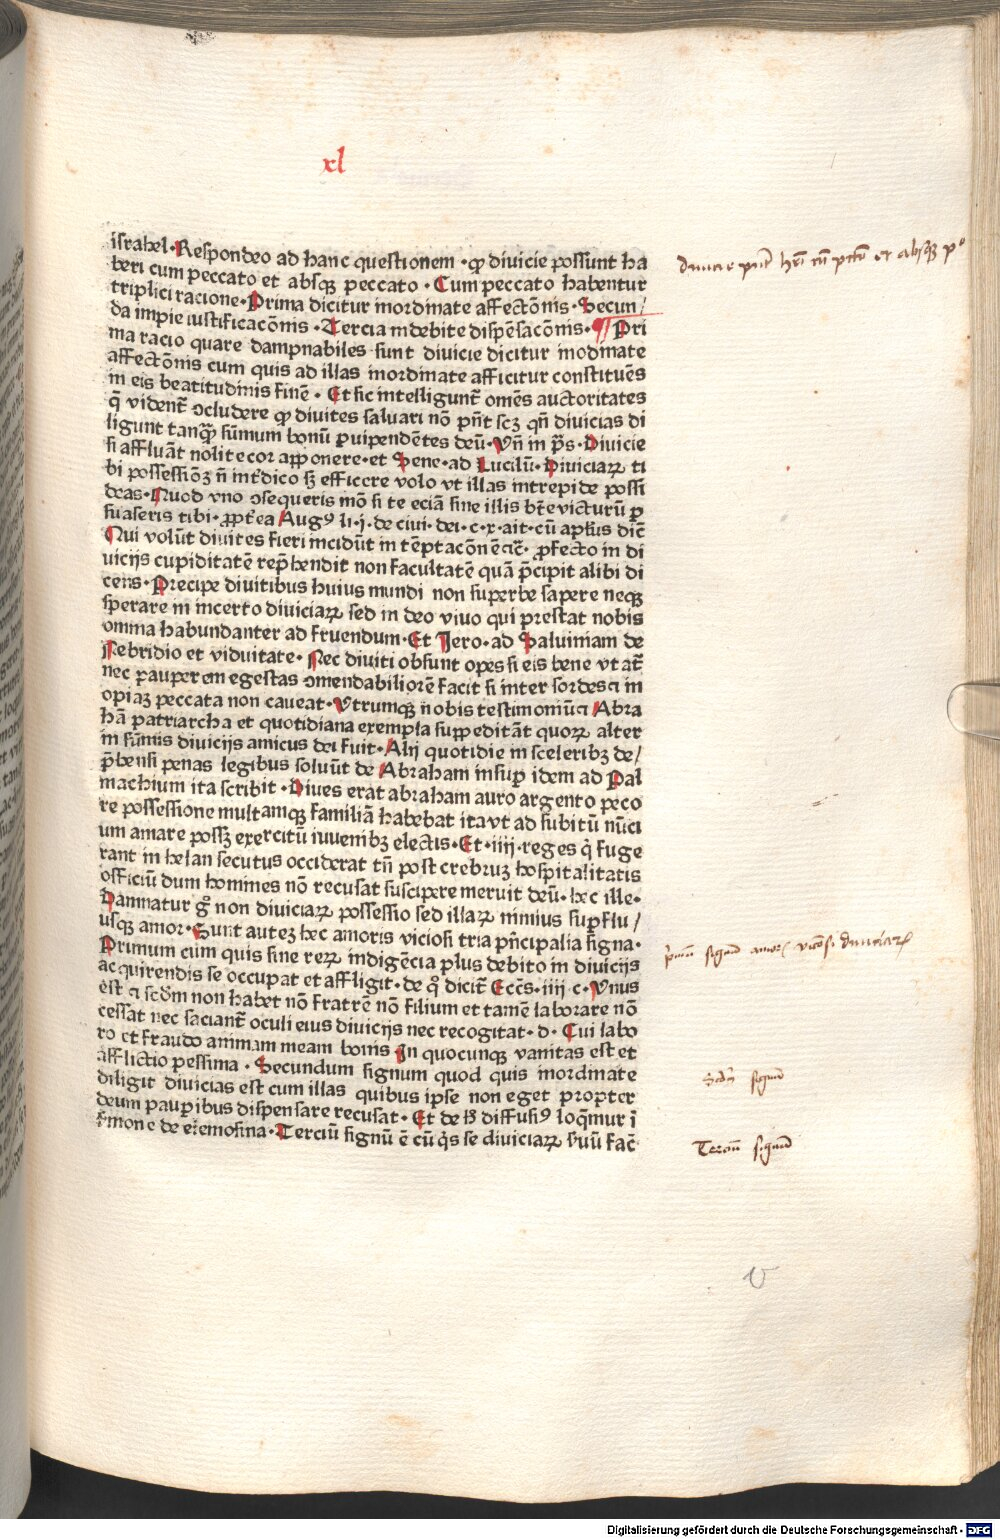 xl
israhel·Respondeo ad hanc questionem·ꝙ diuicie possunt ha
beri cum peccato et absqꝫ peccato·Cum peccato habentur
triplici racione·Prima dicitur inordinate affectōnis·Secun/
da impie iustificacōnis·Tercia indebite dispēsacōnis·¶Pri
ma racio quare dampnabiles sunt diuicie dicitur inodinate
affectōnis cum quis ad illas inordinate afficitur constituēs
in eis beatitudinis finē·Et sic intelligunt̄ om̄es auctoritates
q̄ vident̄ ꝯcludere ꝙ diuites saluari nō pn̄t scꝫ qn̄ diuicias di
ligunt tanqꝫ̄ sūmum bonū ꝑuipendētes deū·Vn̄ in pˉs·Diuicie
si affluāt nolite cor apponere·et Sene·ad Lucilū·Diuiciaꝝ ti
bi possessiōꝫ nˉ int̄dico sꝫ efficere volo vt illas intrepide possi
deas·Quod vno ꝯsequeris mō si te eciā sine illis bn̄ victurū ꝑ
suaseris tibi·ꝓpt̄ea Augꝰ li·j·de ciui·dei·c·x·ait·cū apl̄us dic̄
Qui volūt diuites fieri incidūt in tēptacōnē ⁊c̄·ꝓfecto in di
uicijs cupiditatē rep̄hendit non facultatē quā p̄cipit alibi di
cens·Precipe diuitibus huius mundi non superbe sapere neqꝫ
sperare in incerto diuiciaꝝ sed in deo viuo qui prestat nobis
omnia habundanter ad fruendum·Et Jero·ad Saluiniam de
Nebridio et viduitate·Nec diuiti obsunt opes si eis bene vtat̄
nec pauperem egestas ꝯmendabiliorē facit si inter sordes ⁊ in
opiaꝫ peccata non caueat·Vtrumqꝫ nobis testimoniū ⁊ Abra
hā patriarcha et quotidiana exempla suppeditāt quoꝝ alter
in sūmis diuicijs amicus dei fuit·Alij quotidie in sceleribꝫ de/
p̄hensi penas legibus soluūt de Abraham insuꝑ idem ad Pal
machium ita scribit·Diues erat abraham auro argento peco
re possessione multamqꝫ familiā habebat ita vt ad subitū nūci
um amare possꝫ exercitū iuuenibꝫ electis·Et·iiij·reges q̄ fuge
rant in helan secutus occiderat tn̄ post crebruꝫ hospitalitatis
officiū dum homines nō recusat suscipere meruit deū·hec ille·
Damnatur gͦ non diuiciaꝝ possessio sed illaꝝ nimius suꝑflu/
usqꝫ amor·Sunt auteꝫ hec amoris viciosi tria pˉncipalia signa·
Primum cum quis sine reꝝ indigēcia plus debito in diuicijs
acquirendis se occupat et affligit·de qͦ dicit̄ Ecc̄s·iiij·c·Vnus
est ⁊ scd̄m non habet nō fratrē nō filium et tamē laborare nō
cessat nec saciant̄ oculi eius diuicijs nec recogitat·d·Cui labo
ro et fraudo animam meam bonis In quocunqꝫ vanitas est et
afflictio pessima·Secundum signum quod quis inordinate
diligit diuicias est cum illas quibus ipse non eget propter
deum pauꝑibus dispensare recusat·Et de hͦ diffusiꝰ loq̄mur ī
s̄mone de elemosina·Terciū signū ē cū q̄s se diuiciaꝝ s̄uū fac̄
diuicie pn̄t hr̄i cū pctō et absqꝫ pͦ
p̄mū signū amoris viciosi diuiciaꝝ
Scdm̄ signū
Terciū signū
Digitalisierung gefördert durch die Deutsche Forschungsgemeinschaft - DFG